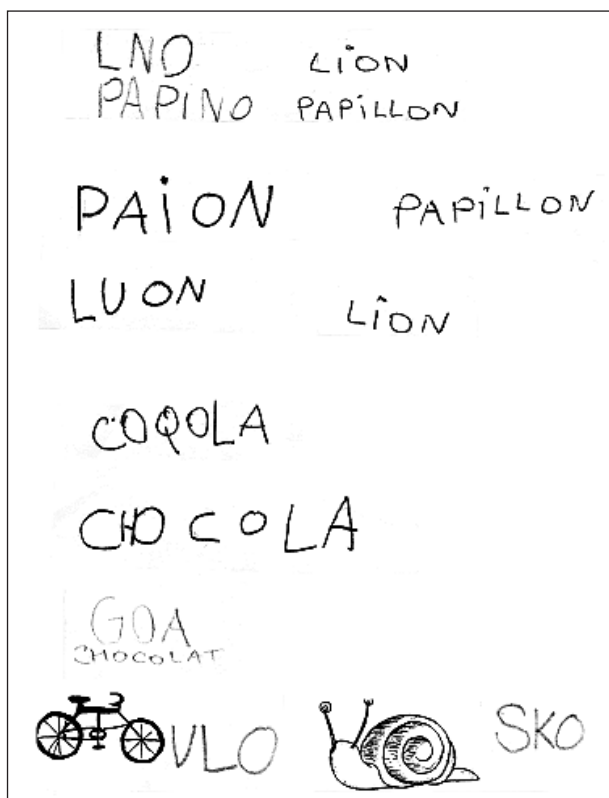 LNO LiON
PAPINO PAPiLLON
PAiON PAPiLLON
LUON LiON
COQOLA
CHOCOLA
GOA
CHOCOLAT
VLO SKO